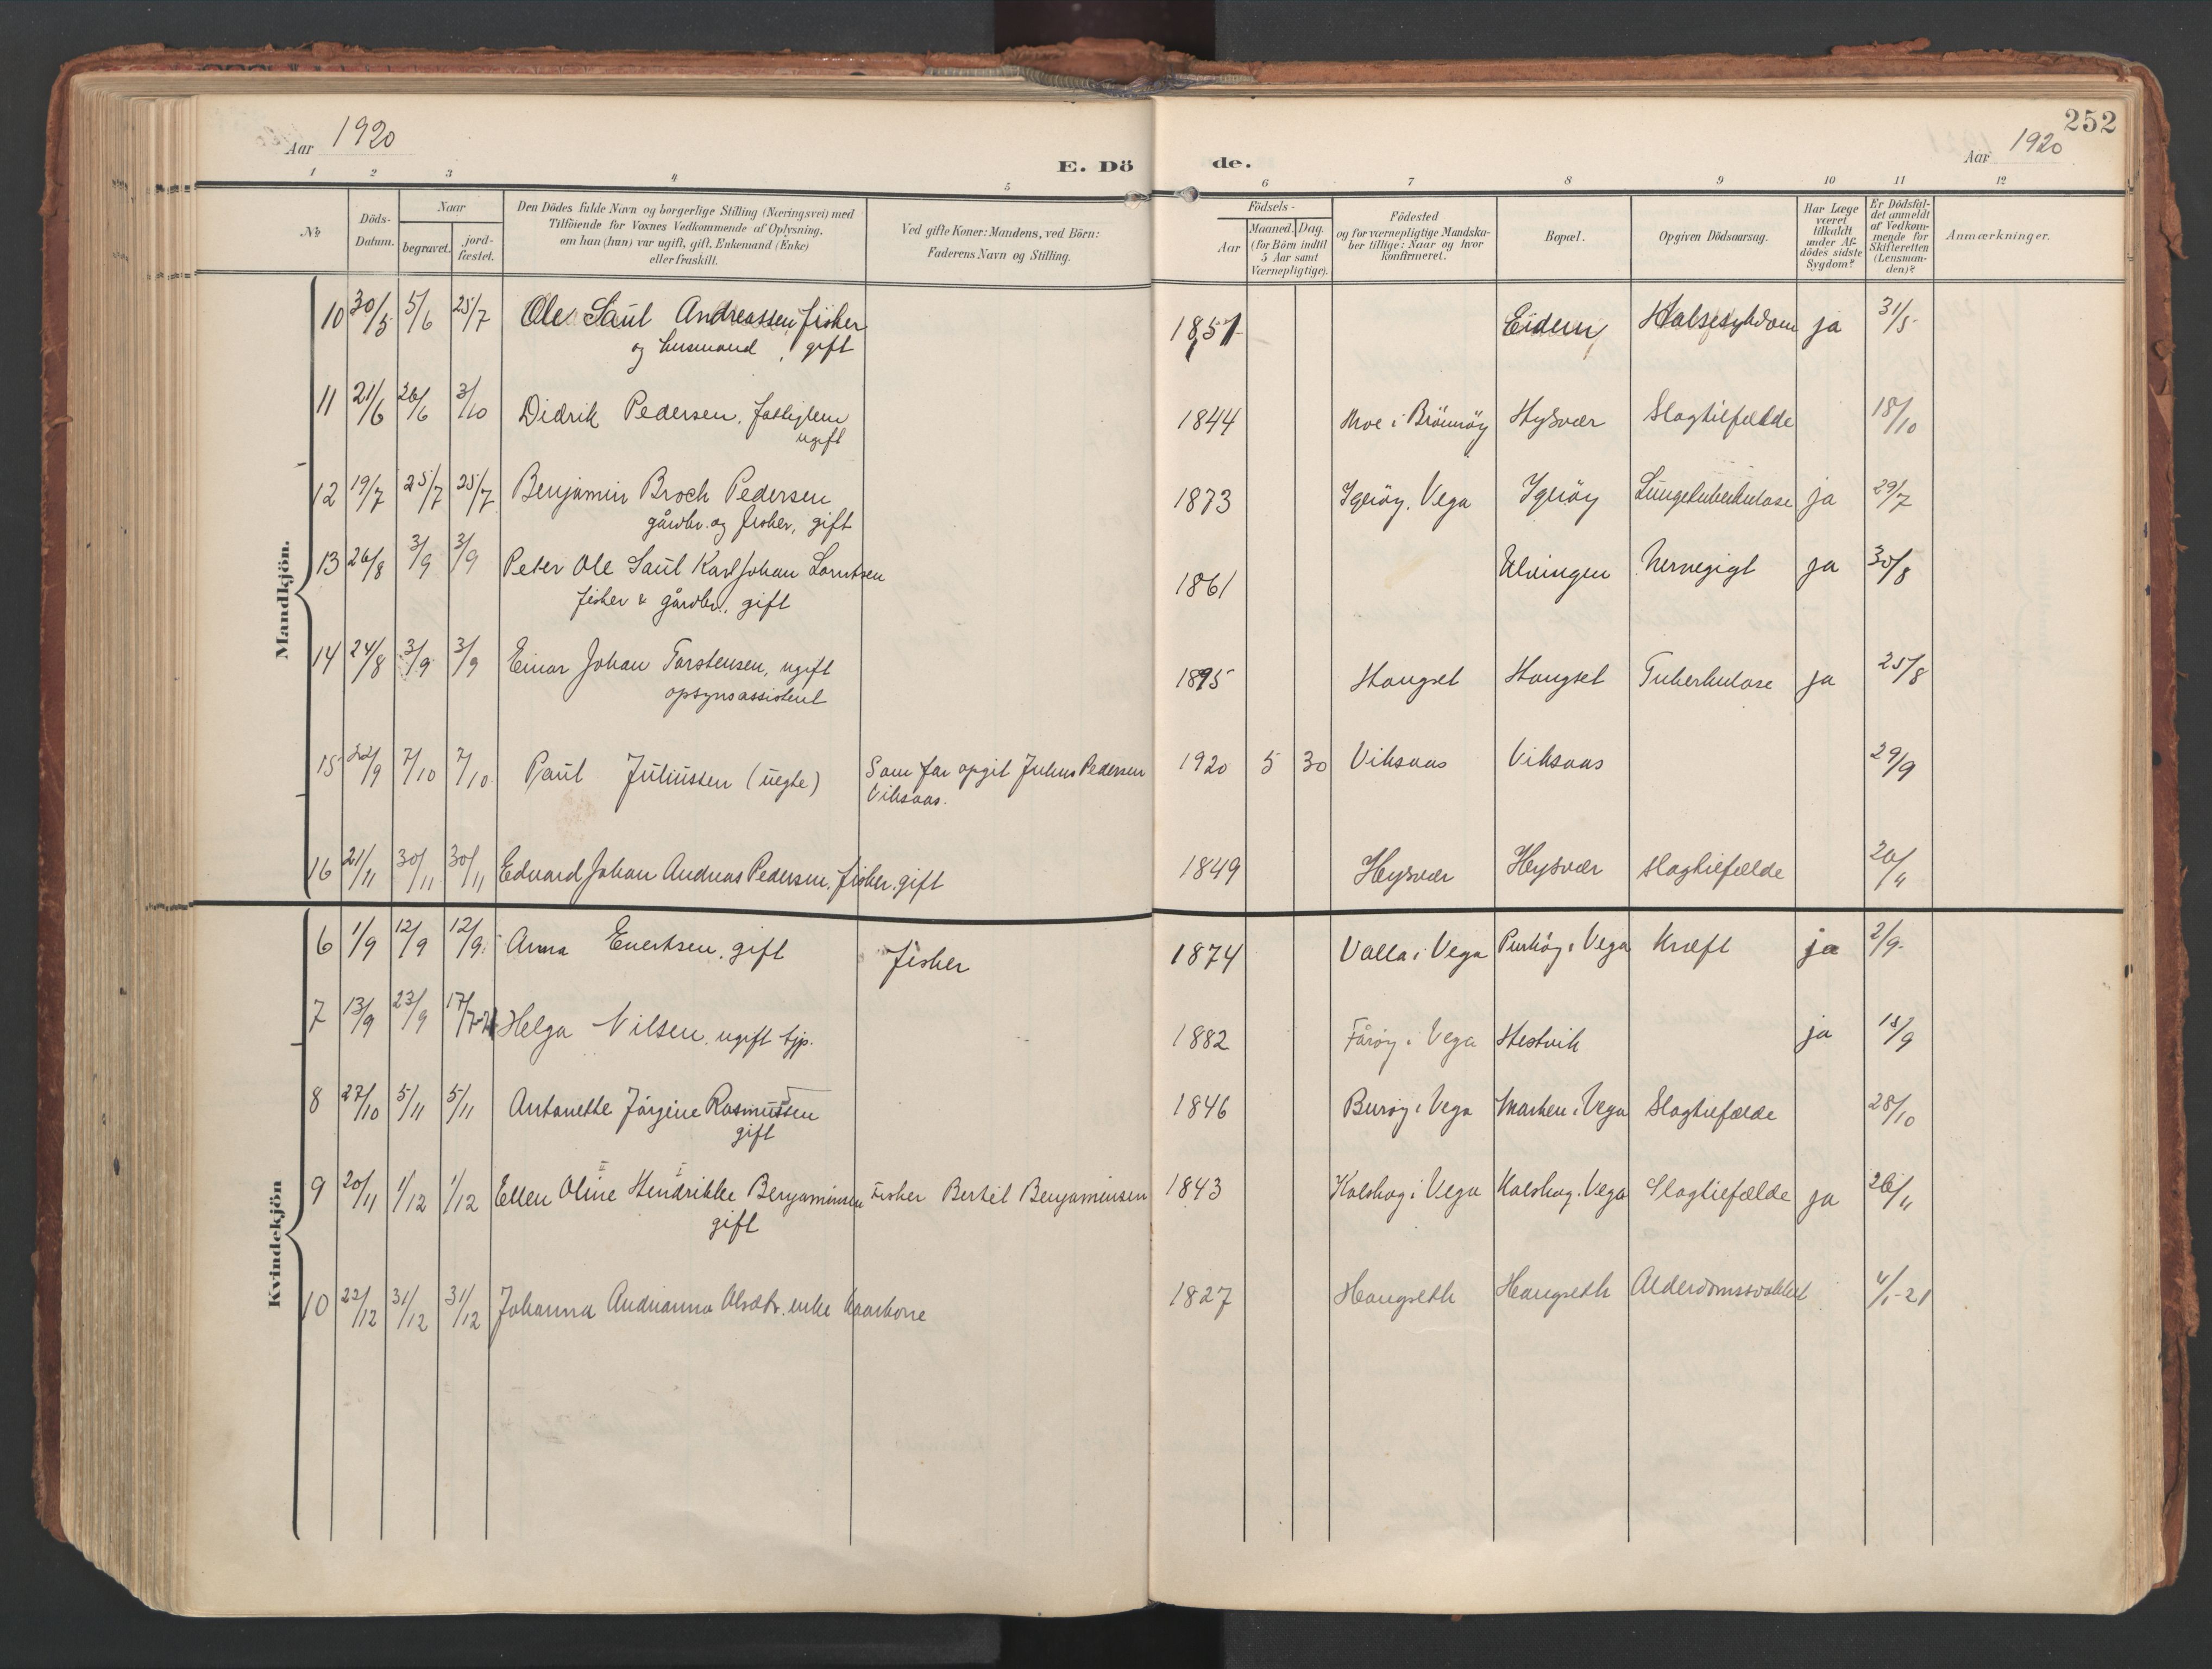 252
Aar 1920
E. Dö de.
Aar 1920
1 2 3 4 5 6 7 8 9 10 11 12
No
Döds-Datum.
Naar
begravet.
jord-fæstet.
Den Dödes fulde Navn og borgerlige Stilling (Næringsvei) med
Tilföiende for Voxnes Vedkommende af Oplysning,
om han (hun) var ugift, gift, Enkemand (Enke)
eller fraskilt.
Ved gifte Koner: Mandens, ved Börn:
Faderens Navn og Stilling.
Födsels-
Aar
Maaned. Dag.
(for Börn indtil
5 Aar samt
Værnepligtige).
Födested
og for værnepligtige Mandska-
ber tillige: Naar og hvor
konfirmeret.
Bopæl.
Opgiven Dödsaarsag.
Har Læge
været
tilkaldt
under Af-
dödes sidste
Sygdom?
Er Dödsfal-
det anmeldt
af Vedkom-
mende for
Skifteretten
(Lensman-
den)?
Anmærkninger.
Mandkjön.
10 30/5 5/6 25/7 Ole Saul Andreassen, fisker 1857 Eidem Halsesykdom ja 31/5
og husmand, gift
11 21/6 26/6 3/10 Didrik Pedersen, fattiglem 1844 Moe i Brönnöy Hysvær Slagtilfælde 18/10
ugift
12 19/7 25/7 25/7 Benjamin Broch Pedersen 1873 Igeröy, Vega Igeröy Lungetuberkulose ja 29/7
gårdbr. og fisker, gift
13 26/8 3/9 3/9 Peter Ole Saul Karl Johan Lorntsen 1861 Ulvingen Nervegigt ja 30/8
fisker & gårdbr., gift
14 24/8 3/9 3/9 Einar Johan Torstensen, ugift 1895 Hongset Hongset Tuberkulose ja 25/8
opsynsassistent
15 22/9 7/10 7/10 Paul Juliussen (uegte) Som far opgit Julius Pedersen 1920 5 30 Viksaas Viksaas 29/9
Viksaas.
16 21/11 30/11 30/11 Edvard Johan Andreas Pedersen, fisker, gift 1849 Hysvær Hysvær Slagtilfælde 26/11
Kvindekjön
6 1/9 12/9 12/9 Anna Evertsen, gift fisker 1874 Valla i Vega Purköy i Vega Kræft ja 2/9
7 13/9 23/9 17/7-21 Helga Nilsen, ugift tjp. 1882 Fåröy i Vega Hestvik ja 15/9
8 27/10 5/11 5/11 Antonette Jörgine Rasmussen 1846 Buröy i Vega Marken i Vega Slagtilfælde 28/10
gift
9 20/11 1/12 1/12 Ellen Oline Hendrikke Benjaminsen Fisker Bertel Benjaminsen 1843 Kalshag i Vega Kalshag, Vega Slagtilfælde ja 26/11
gift
10 22/12 31/12 31/12 Johanna Andrianna Olsdtr. enke kaarkone 1827 Hongseth Hongseth Alderdomssvakhet 4/1-21